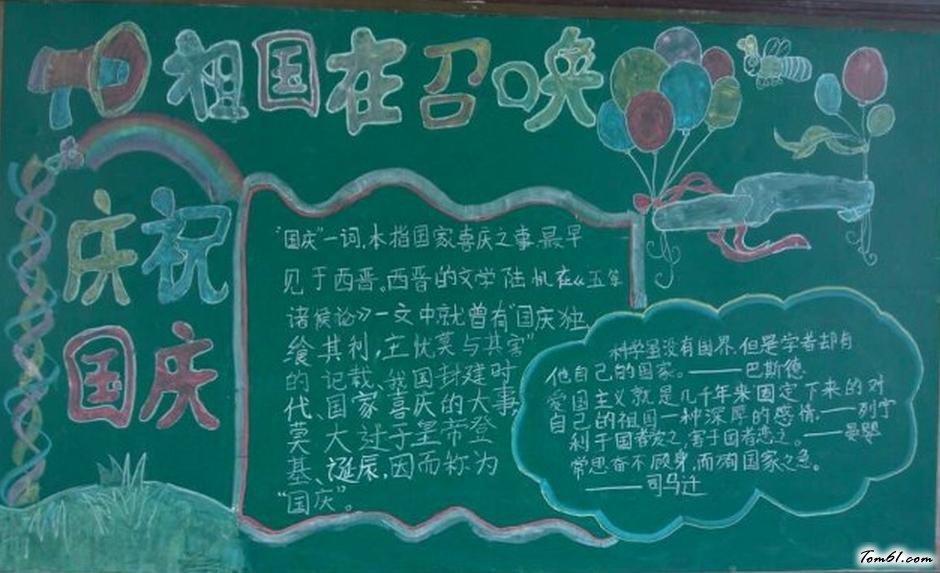 祖国在召唤
庆祝
国庆
"国庆"一词,本指国家喜庆之事最早
见于西晋。西晋的文学陆机在《五等
诸侯论》一文中就曾有"国庆独
飨其利,主忧莫与其害"
的记载、我国封建时
代、国家喜庆的大事,
莫大过于皇帝登
基、诞辰,因而称为
"国庆"。
科学虽没有国界,但是学者却有
他自己的国家。——巴斯德
爱国主义就是几千年来固定下来的对
自己的祖国一种深厚的感情。——列宁
利于国者爱之,害于国者恶之。——晏婴
常思奋不顾身,而殉国家之急。
——司马迁
Tom61.com